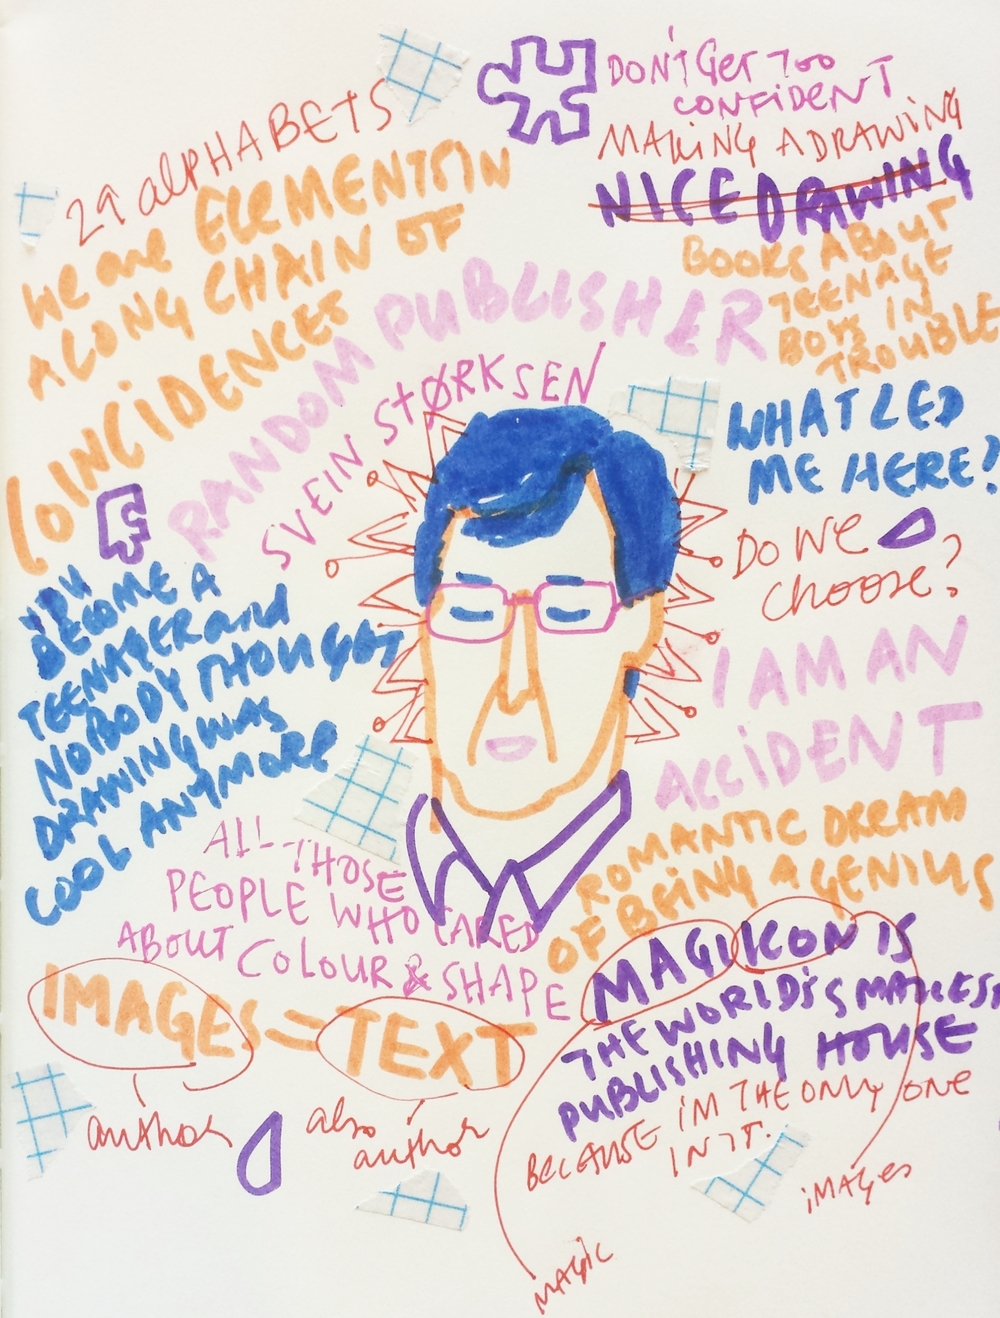 29 alPHABETS
We are ELEMENTS IN
A LONG CHAIN OF
COINCIDENCES
DON'T GeT TOO
CONFiDENT
MAKiNG A DRAWiNG
NICE DRAWING
BOOKS ABOUT
TEENAGE
BOYS IN
TROUBLE
RANDOM PUBLISHER
SVEIN STØRKSEN
WHAT LED
ME HERE?
DO WE
choose?
I AM AN
ACCIDENT
YOU
BECOME A
TEENAGER and
NOBODY THOUGHT
DRAWING WAS
COOL ANYMORE
ROMANTIC DREAM
OF BEING A GENIUS
ALL THOSE
PEOPLE WHO CARED
ABOUT COLOUR & SHAPE
IMAGES = TEXT
author
also
author
MAGIKON IS
THE WORLD'S MADLESS
PUBLISHING HOUSE
BECAUSE I'M THE ONLY ONE
IN IT.
iMAGes
MAGIC